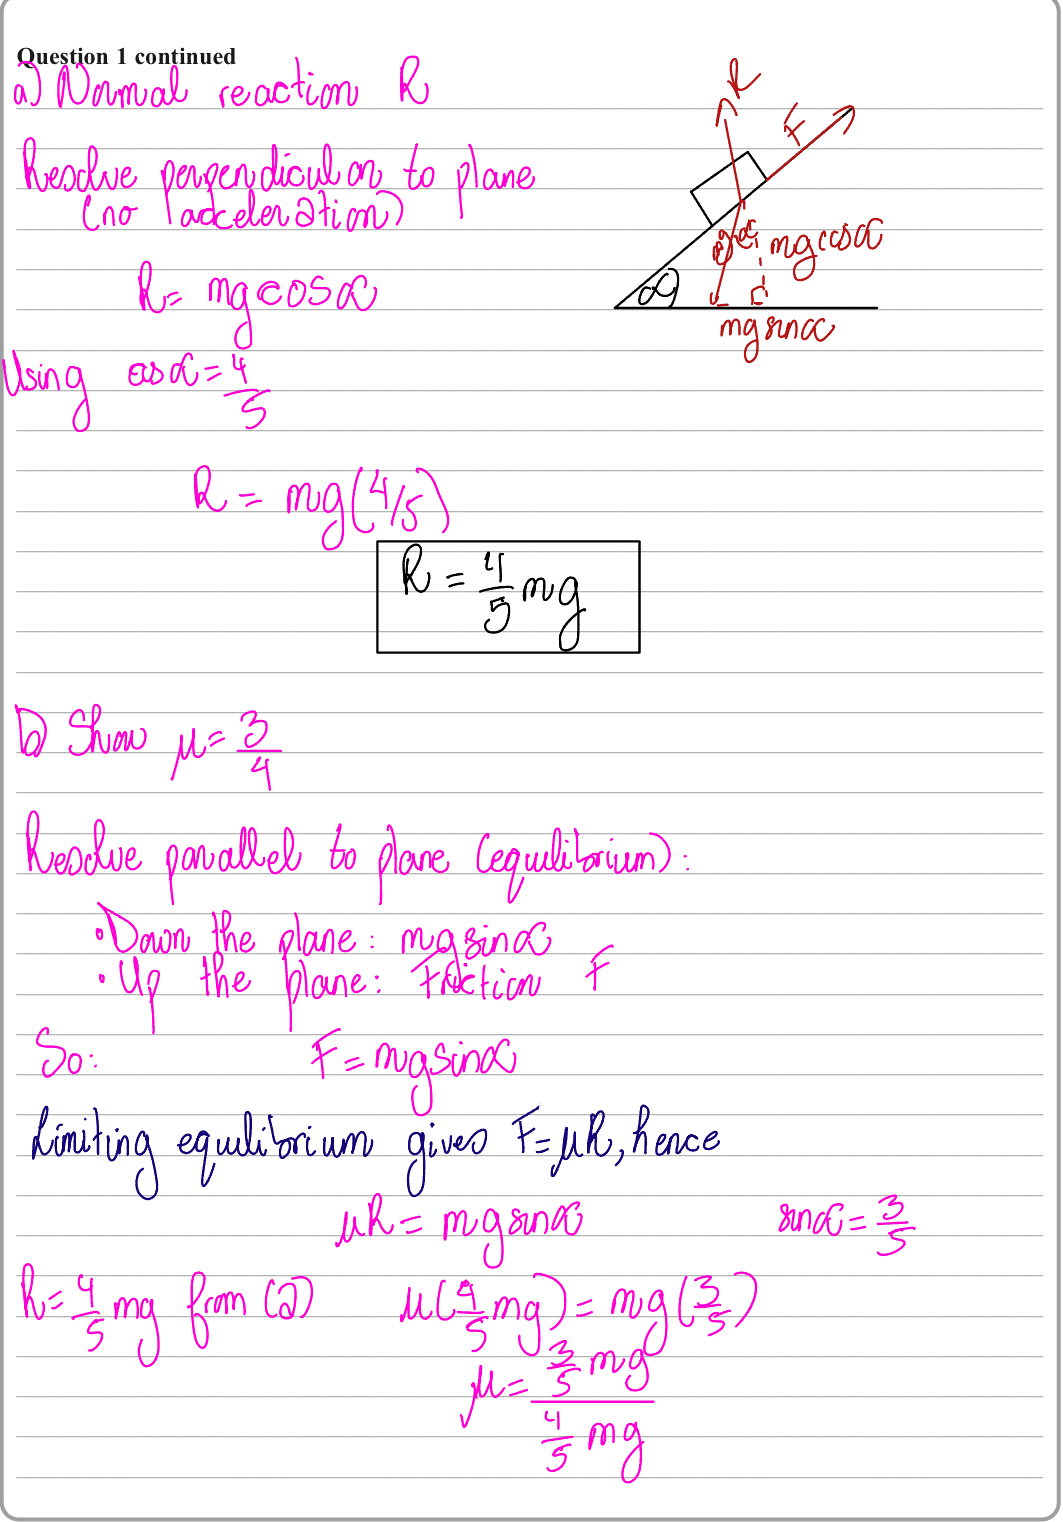 Question 1 continued
a) Normal reaction R
Resolve perpendicular to plane
(no adceleration)
R = mgcosα
Using cosα = 4/5
R = mg(4/5)
R = 4/5 mg
R
F
mg
α
mgcosα
α
mgsinα
b) Show μ = 3/4
Resolve parallel to plane (equilibrium):
• Down the plane: mgsinα
• Up the plane: Friction F
So: F = mgsinα
Limiting equilibrium gives F = μR, hence
μR = mgsinα sinα = 3/5
R = 4/5 mg from (a) μ(4/5 mg) = mg(3/5)
μ = 3/5 mg
4/5 mg